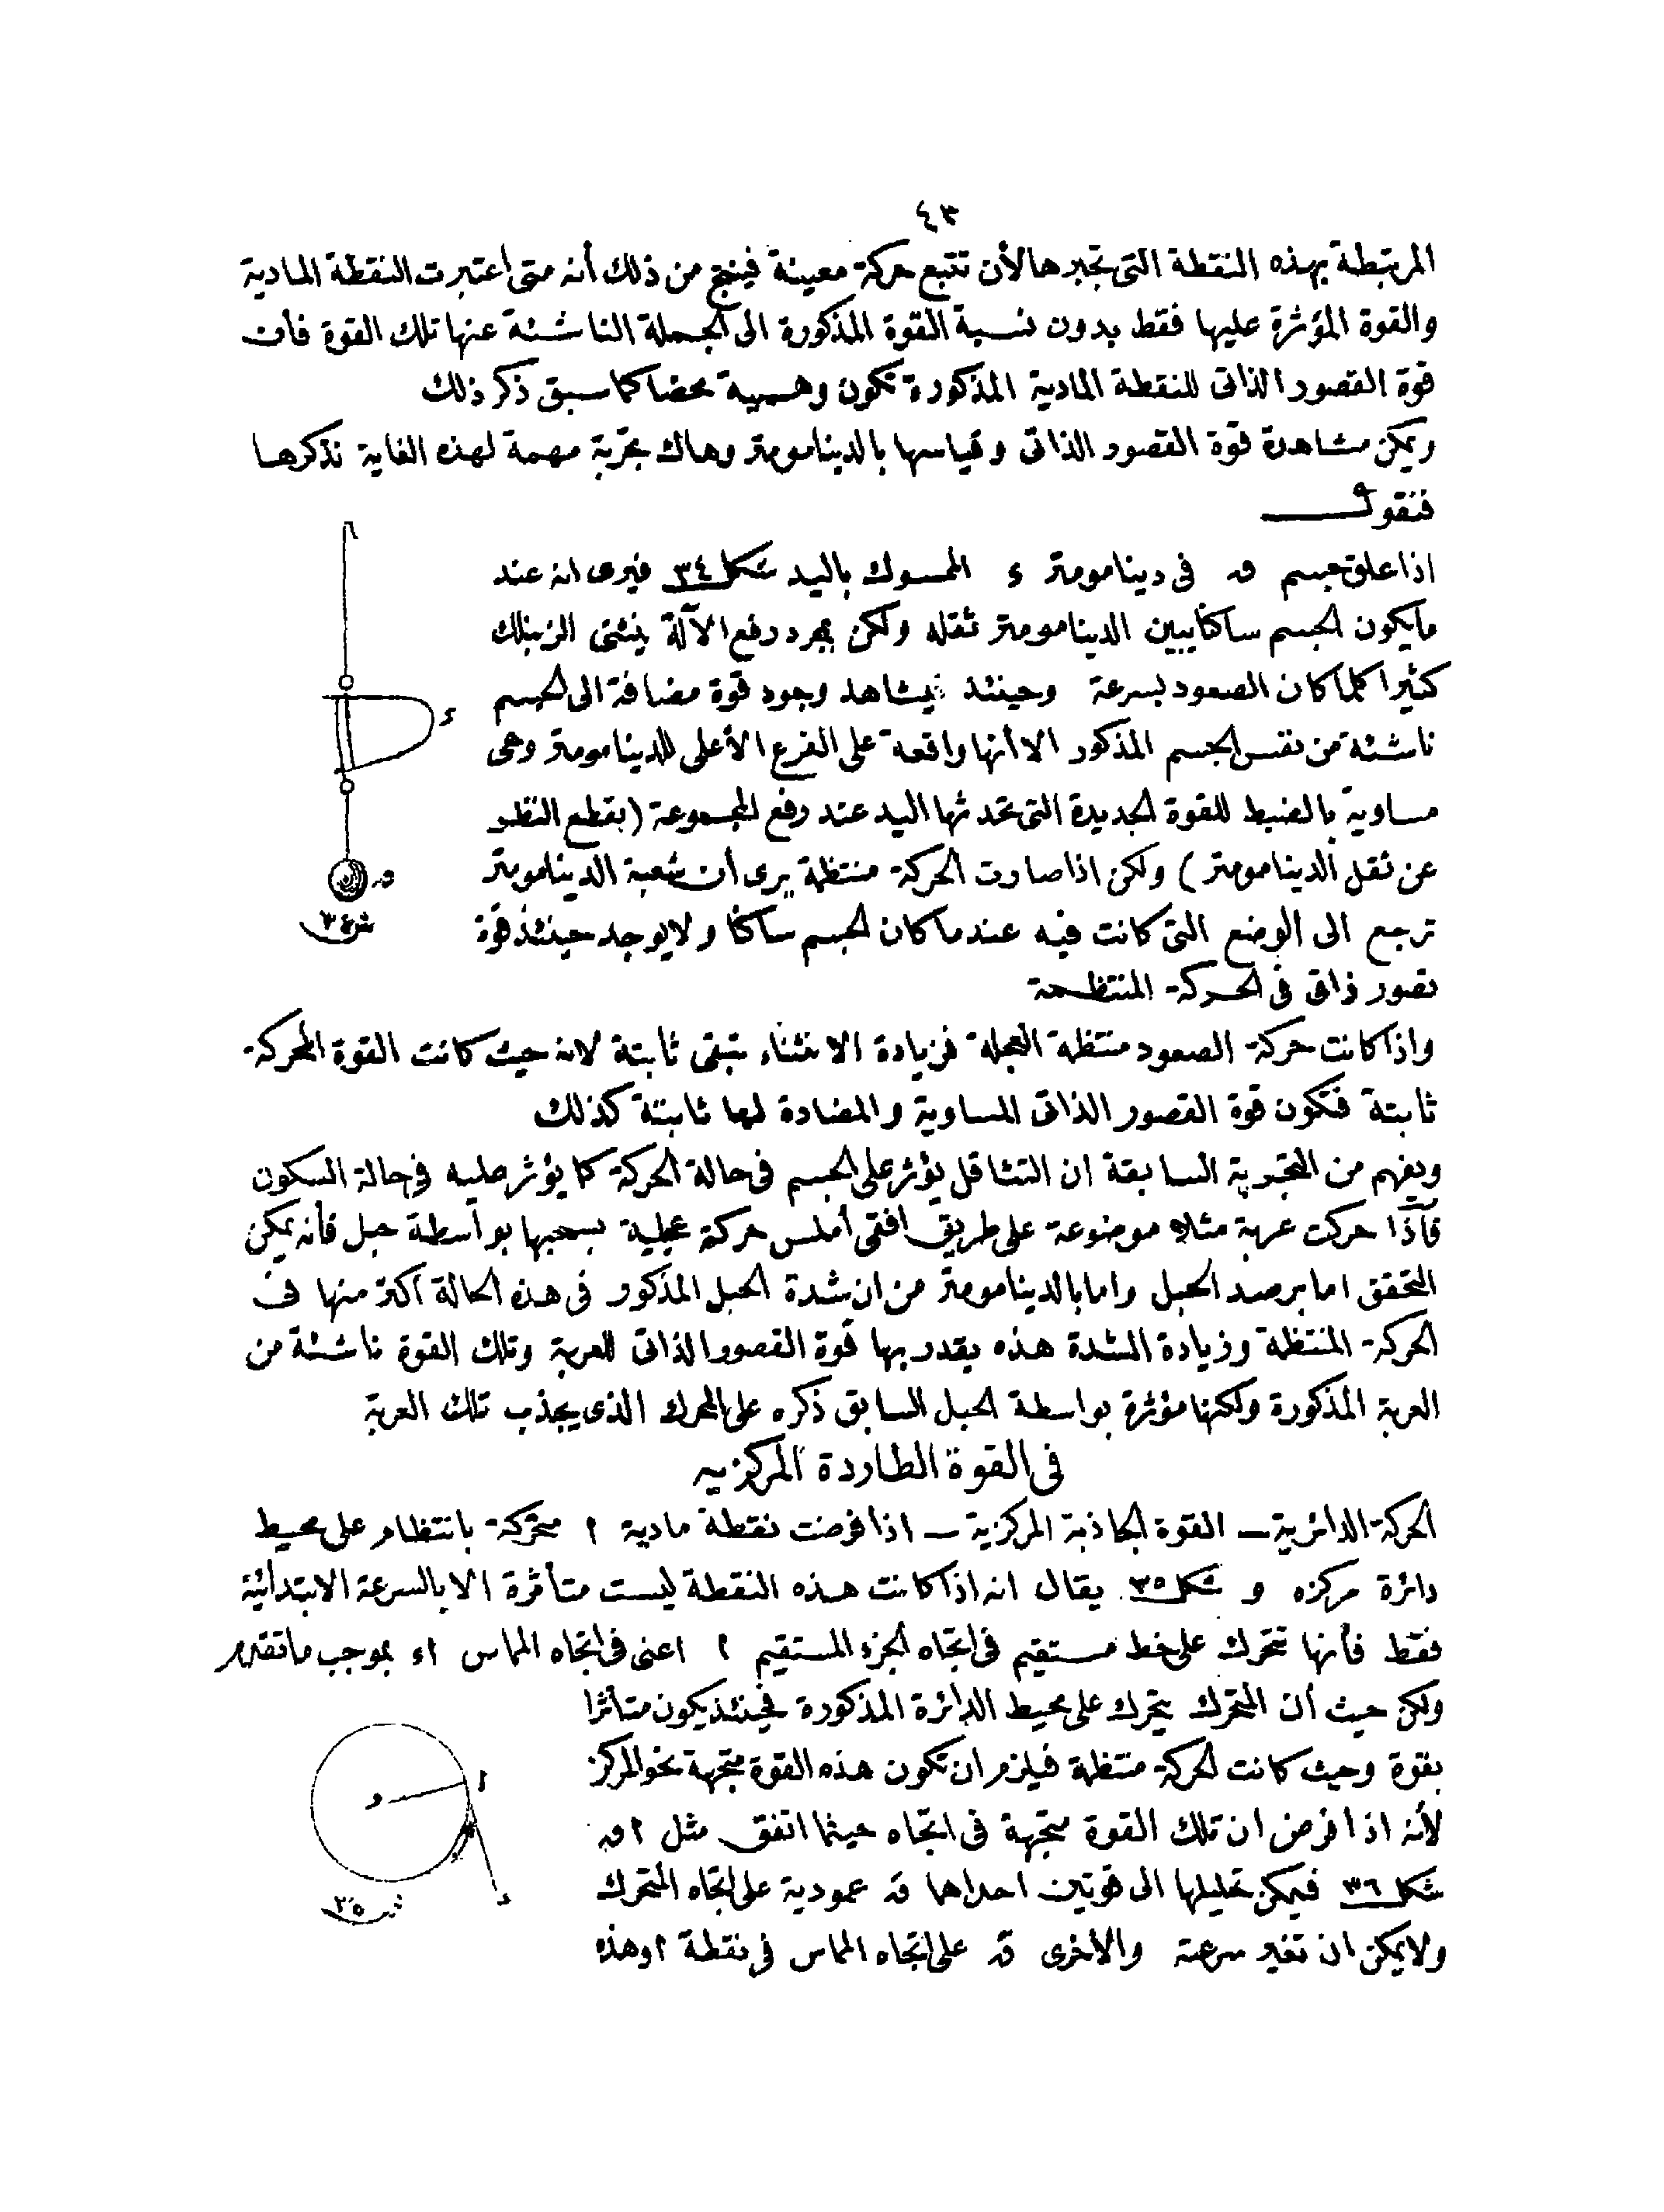 ٤٣
المرتبطة بهذه النقطة التى تجبرها لأن تتبع حركة معينة فينتج من ذلك أنه متى اعتبرت النقطة المادية
والقوة المؤثرة عليها فقط بدون نسبة القوة المذكورة الى الجملة الناشئة عنها تلك القوة فأن
قوة القصور الذاتى للنقطة المادية المذكورة تكون وهمية محضا كما سبق ذكر ذلك
ويمكن مشاهدة قوة القصور الذاتى وقياسها بالدينامومتر وهاك تجربة مهمة لهذه الغاية نذكرها
فنقول
اذا علق جسم ق فى دينامومتر ء الممسوك باليد شكل ٣٤ فيرى انه عند
مايكون الجسم ساكنا يبين الدينامومتر ثقله ولكن بمجرد رفع الآلة ينثنى الزنبلك
كثيرا كلما كان الصعود بسرعة وحينئذ يشاهد وجود قوة مضافة الى الجسم
ناشئة من نفس الجسم المذكور الا أنها واقعة على الفرع الأعلى للدينامومتر وهى
مساوية بالضبط للقوة الجديدة التى تحدثها اليد عند رفع المجموعة (بقطع النظر
عن ثقل الدينامومتر) ولكن اذا صارت الحركة منتظمة يرى أن شعبة الدينامومتر
ترجع الى الوضع التى كانت فيه عند ما كان الجسم ساكنا ولا يوجد حينئذ قوة
قصور ذاتى فى الحركة المنتظمة
واذا كانت حركة الصعود منتظمة العجلة فزيادة الانثناء تبقى ثابتة لانه حيث كانت القوة المحركة
ثابتة فتكون قوة القصور الذاتى المساوية والمضادة لها ثابتة كذلك
ويفهم من التجربة السابقة ان التثاقل يؤثر على الجسم فى حالة الحركة كما يؤثر عليه فى حالة السكون
فأذا حركت عربة مثلا موضوعة على طريق افقى أملس حركة عجلية بسحبها بواسطة حبل فأنه يمكن
التحقق اما برصد الحبل واما بالدينامومتر من ان شدة الحبل المذكور فى هذه الحالة اكثر منها فى
الحركة المنتظمة وزيادة الشدة هذه يقدر بها قوة القصور الذاتى للعربة وتلك القوة ناشئة من
العربة المذكورة ولكنها مؤثرة بواسطة الحبل السابق ذكره على المحرك الذى يجذب تلك العربة
فى القوة الطاردة المركزيه
الحركة الدائرية — القوة الجاذبة المركزية — اذا فرضت نقطة مادية ا متحركة بانتظام على محيط
دائرة مركزه و شكل ٣٥ يقال انه اذا كانت هذه النقطة ليست متأثرة الا بالسرعة الابتدائية
فقط فأنها تتحرك على خط مستقيم فى اتجاه الجزء المستقيم ا اعنى فى اتجاه المماس اء بموجب ماتقدم
ولكن حيث أن المتحرك يتحرك على محيط الدائرة المذكورة فحينئذ يكون متأثرا
بقوة وحيث كانت الحركة منتظمة فيلزم ان تكون هذه القوة متجهة نحو المركز
لأنه اذا فرض ان تلك القوة متجهة فى اتجاه حيثما اتفق مثل اق
شكل ٣٦ فيمكن تحليلها الى قوتين احداها قَ عمودية على اتجاه المتحرك
ولا يمكن ان تغير سرعته والأخرى قً على اتجاه المماس فى نقطة ا وهذه
ء
ق
ش ٣٤
و
ا
ء
ش ٣٥